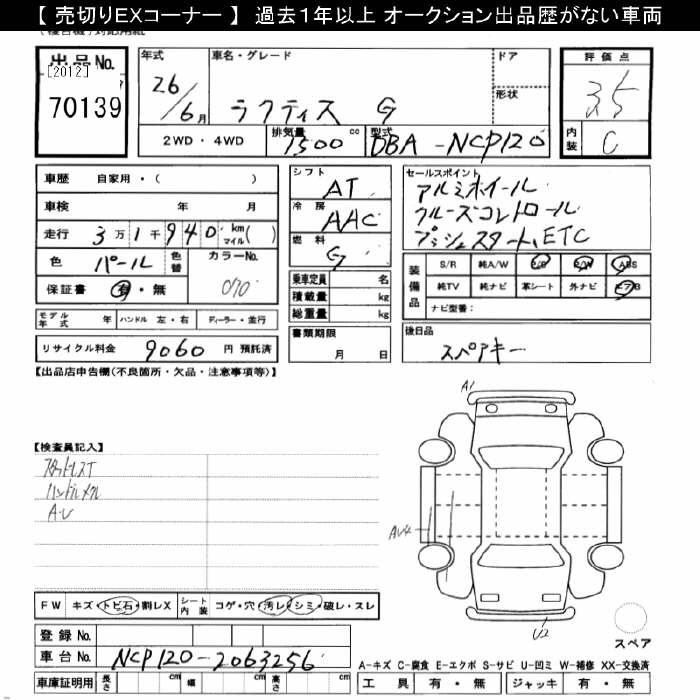 【 売切りEXコーナー 】 過去1年以上 オークション出品歴がない車両
出品No.
[2012]
70139
年式 車名・グレード ドア
26/6月 ラクティス G
形状
2WD・4WD 排気量 1500 cc 型式 DBA-NCP120
評価点
3.5
内装 C
車歴 自家用・( )
車検 年 月
走行 3万1千940 km マイル( )
色 パール 色替 カラーNo.
保証書 有・無 070
モデル年式 年 ハンドル 左・右 ディーラー・並行
リサイクル料金 9060 円 預託済
シフト AT
冷房 AAC
燃料 G
乗車定員 名
積載量 kg
総重量 kg
書類期限
月 日
セールスポイント
アルミホイール
クルーズコントロール
プッシュスタート、ETC
装備品 S/R 純A/W P/S P/W ABS
純TV 純ナビ 革シート 外ナビ エアB
ナビ型番:
後日品
スペアキー
【出品店申告欄(不良箇所・欠品・注意事項等)】
【検査員記入】
ハンドルメクレ
A・U
A1
AU4
U2
スペア
FW キズ・トビ石・割レX シート内装 コゲ・穴・汚レ・シミ・破レ・スレ
登録No.
車台No. NCP120-2063256
車庫証明用 長さ cm 幅 cm 高さ cm
A-キズ C-腐食 E-エクボ S-サビ U-凹ミ W-補修 XX-交換済
工具 有・無 ジャッキ 有・無